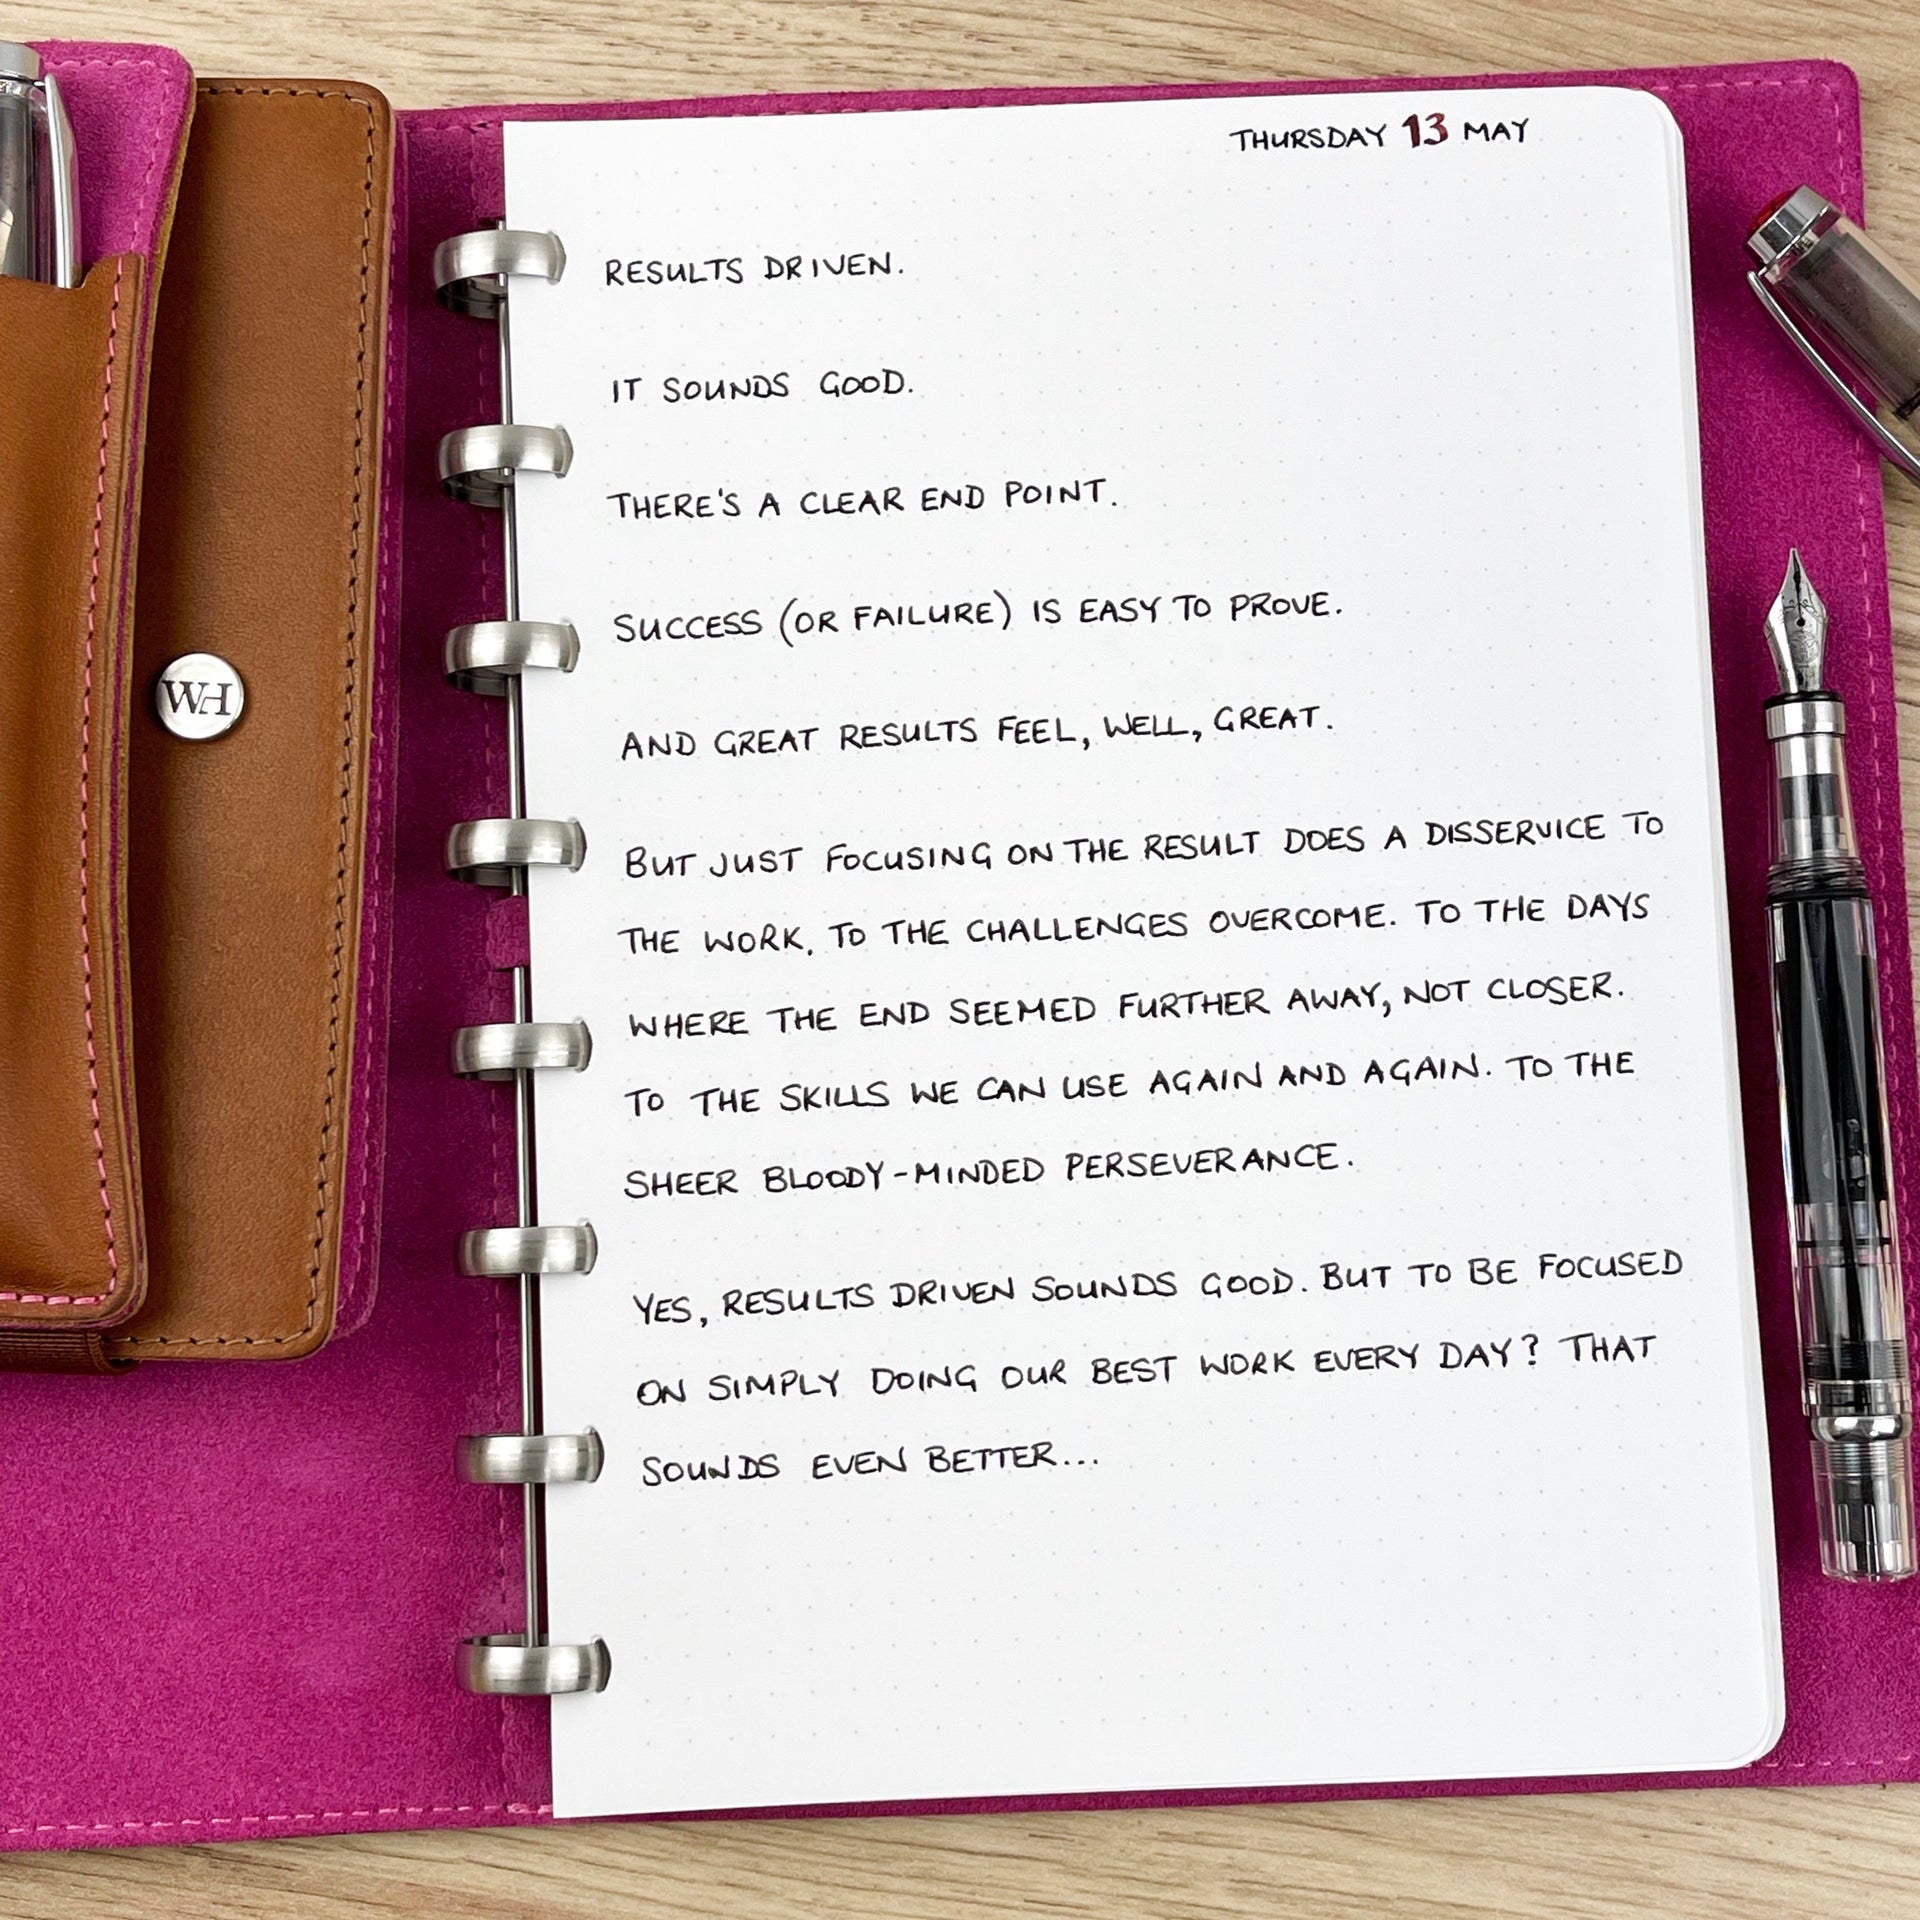 THURSDAY 13 MAY
RESULTS DRIVEN.
IT SOUNDS GOOD.
THERE'S A CLEAR END POINT.
SUCCESS (OR FAILURE) IS EASY TO PROVE.
AND GREAT RESULTS FEEL, WELL, GREAT.
BUT JUST FOCUSING ON THE RESULT DOES A DISSERVICE TO
THE WORK. TO THE CHALLENGES OVERCOME. TO THE DAYS
WHERE THE END SEEMED FURTHER AWAY, NOT CLOSER.
TO THE SKILLS WE CAN USE AGAIN AND AGAIN. TO THE
SHEER BLOODY-MINDED PERSEVERANCE.
YES, RESULTS DRIVEN SOUNDS GOOD. BUT TO BE FOCUSED
ON SIMPLY DOING OUR BEST WORK EVERY DAY? THAT
SOUNDS EVEN BETTER...
WH